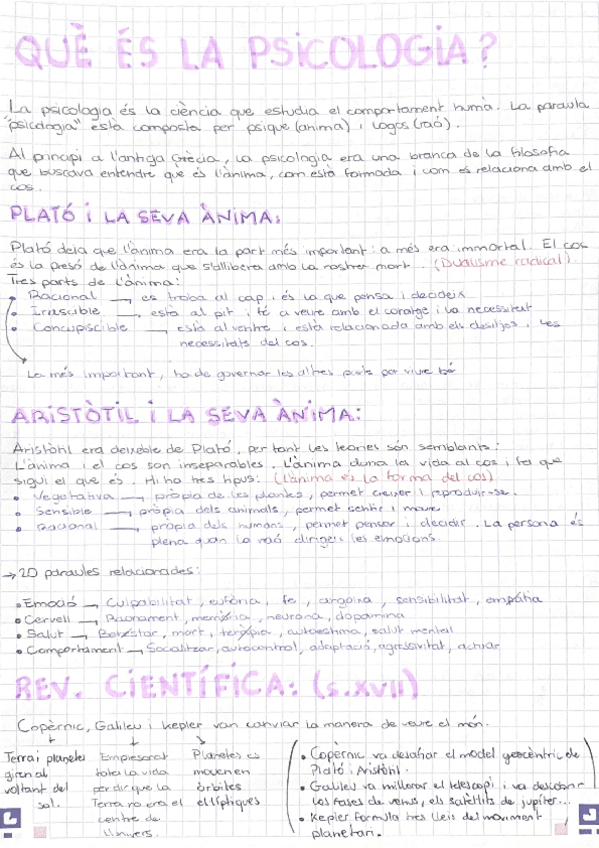 QUÈ ÉS LA PSICOLOGIA?
La psicologia és la ciència que estudia el comportament humà. La paraula
"psicologia" està composta per psique (anima) i logos (raó).
Al principi a l'antiga Grècia, la psicologia era una branca de la filosofia
que buscava entendre que és l'ànima, com està formada i com es relaciona amb el
cos.
PLATÓ I LA SEVA ÀNIMA:
Plató deia que l'ànima era la part més important i a més era immortal. El cos
és la presó de l'ànima que s'allibera amb la nostra mort. (Dualisme radical)
Tres parts de l'ànima:
• Racional → es troba al cap i és la que pensa i decideix
• Irascible → està al pit i té a veure amb el coratge i la necessitat
• Concupiscible → està al ventre i està relacionada amb els desitjos i les
necessitats del cos.
La més important, ha de governar les altres parts per viure bé
ARISTÒTIL I LA SEVA ÀNIMA:
Aristòtil era deixeble de Plató, per tant les teories són semblants:
L'ànima i el cos són inseparables. L'ànima dona la vida al cos i fa que
sigui el que és. Hi ha tres tipus: (L'ànima és la forma del cos)
• Vegetativa → pròpia de les plantes, permet créixer i reproduir-se.
• Sensible → pròpia dels animals, permet sentir i moure
• Racional → pròpia dels humans, permet pensar i decidir. La persona és
plena quan la raó dirigeix les emocions.
→ 20 paraules relacionades:
• Emoció → Culpabilitat, eufòria, fe, angoixa, sensibilitat, empatia
• Cervell → Raonament, memòria, neurona, dopamina
• Salut → Benestar, mort, teràpia, autoestima, salut mental
• Comportament → Socialitzar, autocontrol, adaptació, agressivitat, actuar
REV. CIENTÍFICA: (s.XVII)
Copèrnic, Galileu i Kepler van canviar la manera de veure el món.
Terra i planetes
giren al
voltant del
sol.
Empresonat
tota la vida
per dir que la
Terra no era el
centre de
l'univers.
Planetes es
mouen en
òrbites
el·líptiques
• Copèrnic va desafiar el model geocèntric de
Plató i Aristòtil.
• Galileu va millorar el telescopi i va descobrir
les fases de venus, els satèl·lits de júpiter...
• Kepler formula tres lleis del moviment
planetari.